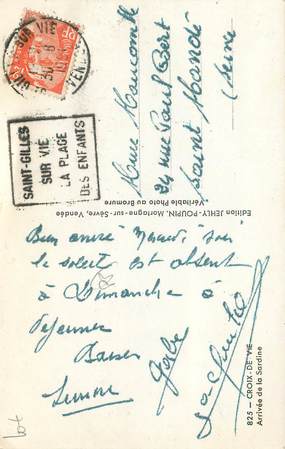 SUR VIE
VENDÉE
RF
SAINT-GILLES
SUR VIE
LA PLAGE
DES ENFANTS
Mme Maucomble
24 rue Paul Bert
Saint Mandé
(Seine)
Edition JEHLY-POUPIN, Mortagne-sur-Sèvre, Vendée
Véritable Photo au Bromure
Bien arrivé Mercredi soir
le soleil est absent
à Dimanche à
déjeuner
Baiser
Simone
825 - CROIX-DE-VIE
Arrivée de la Sardine
Lot